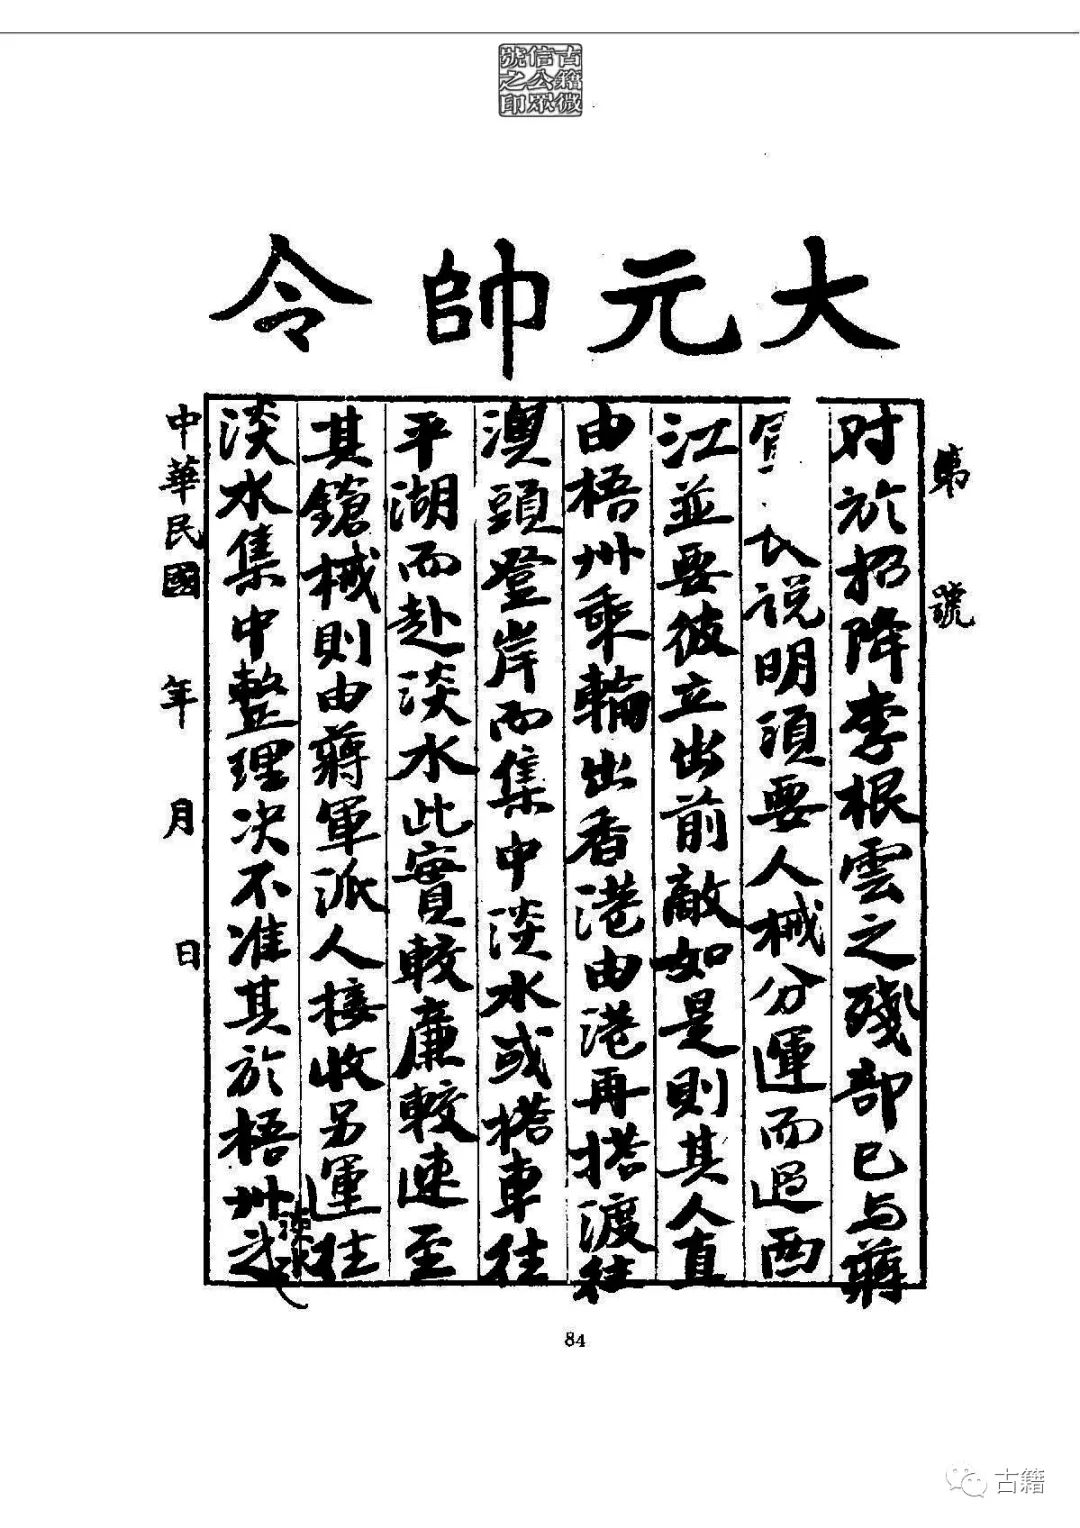 古籍微
信公眾
號之印
大元帥令
第 號
对於招降李根雲之殘部已与蔣
说明須要人械分運而過西
江並要彼立出前敵如是則其人直
由梧州乘輪出香港由港再搭渡往
澳頭登岸而集中淡水或搭車往
平湖而赴淡水此實較廉較速至
其鎗械則由蔣軍派人接收另運往
淡水集中整理决不准其於梧州淡水之
中華民國 年 月 日
84
古籍